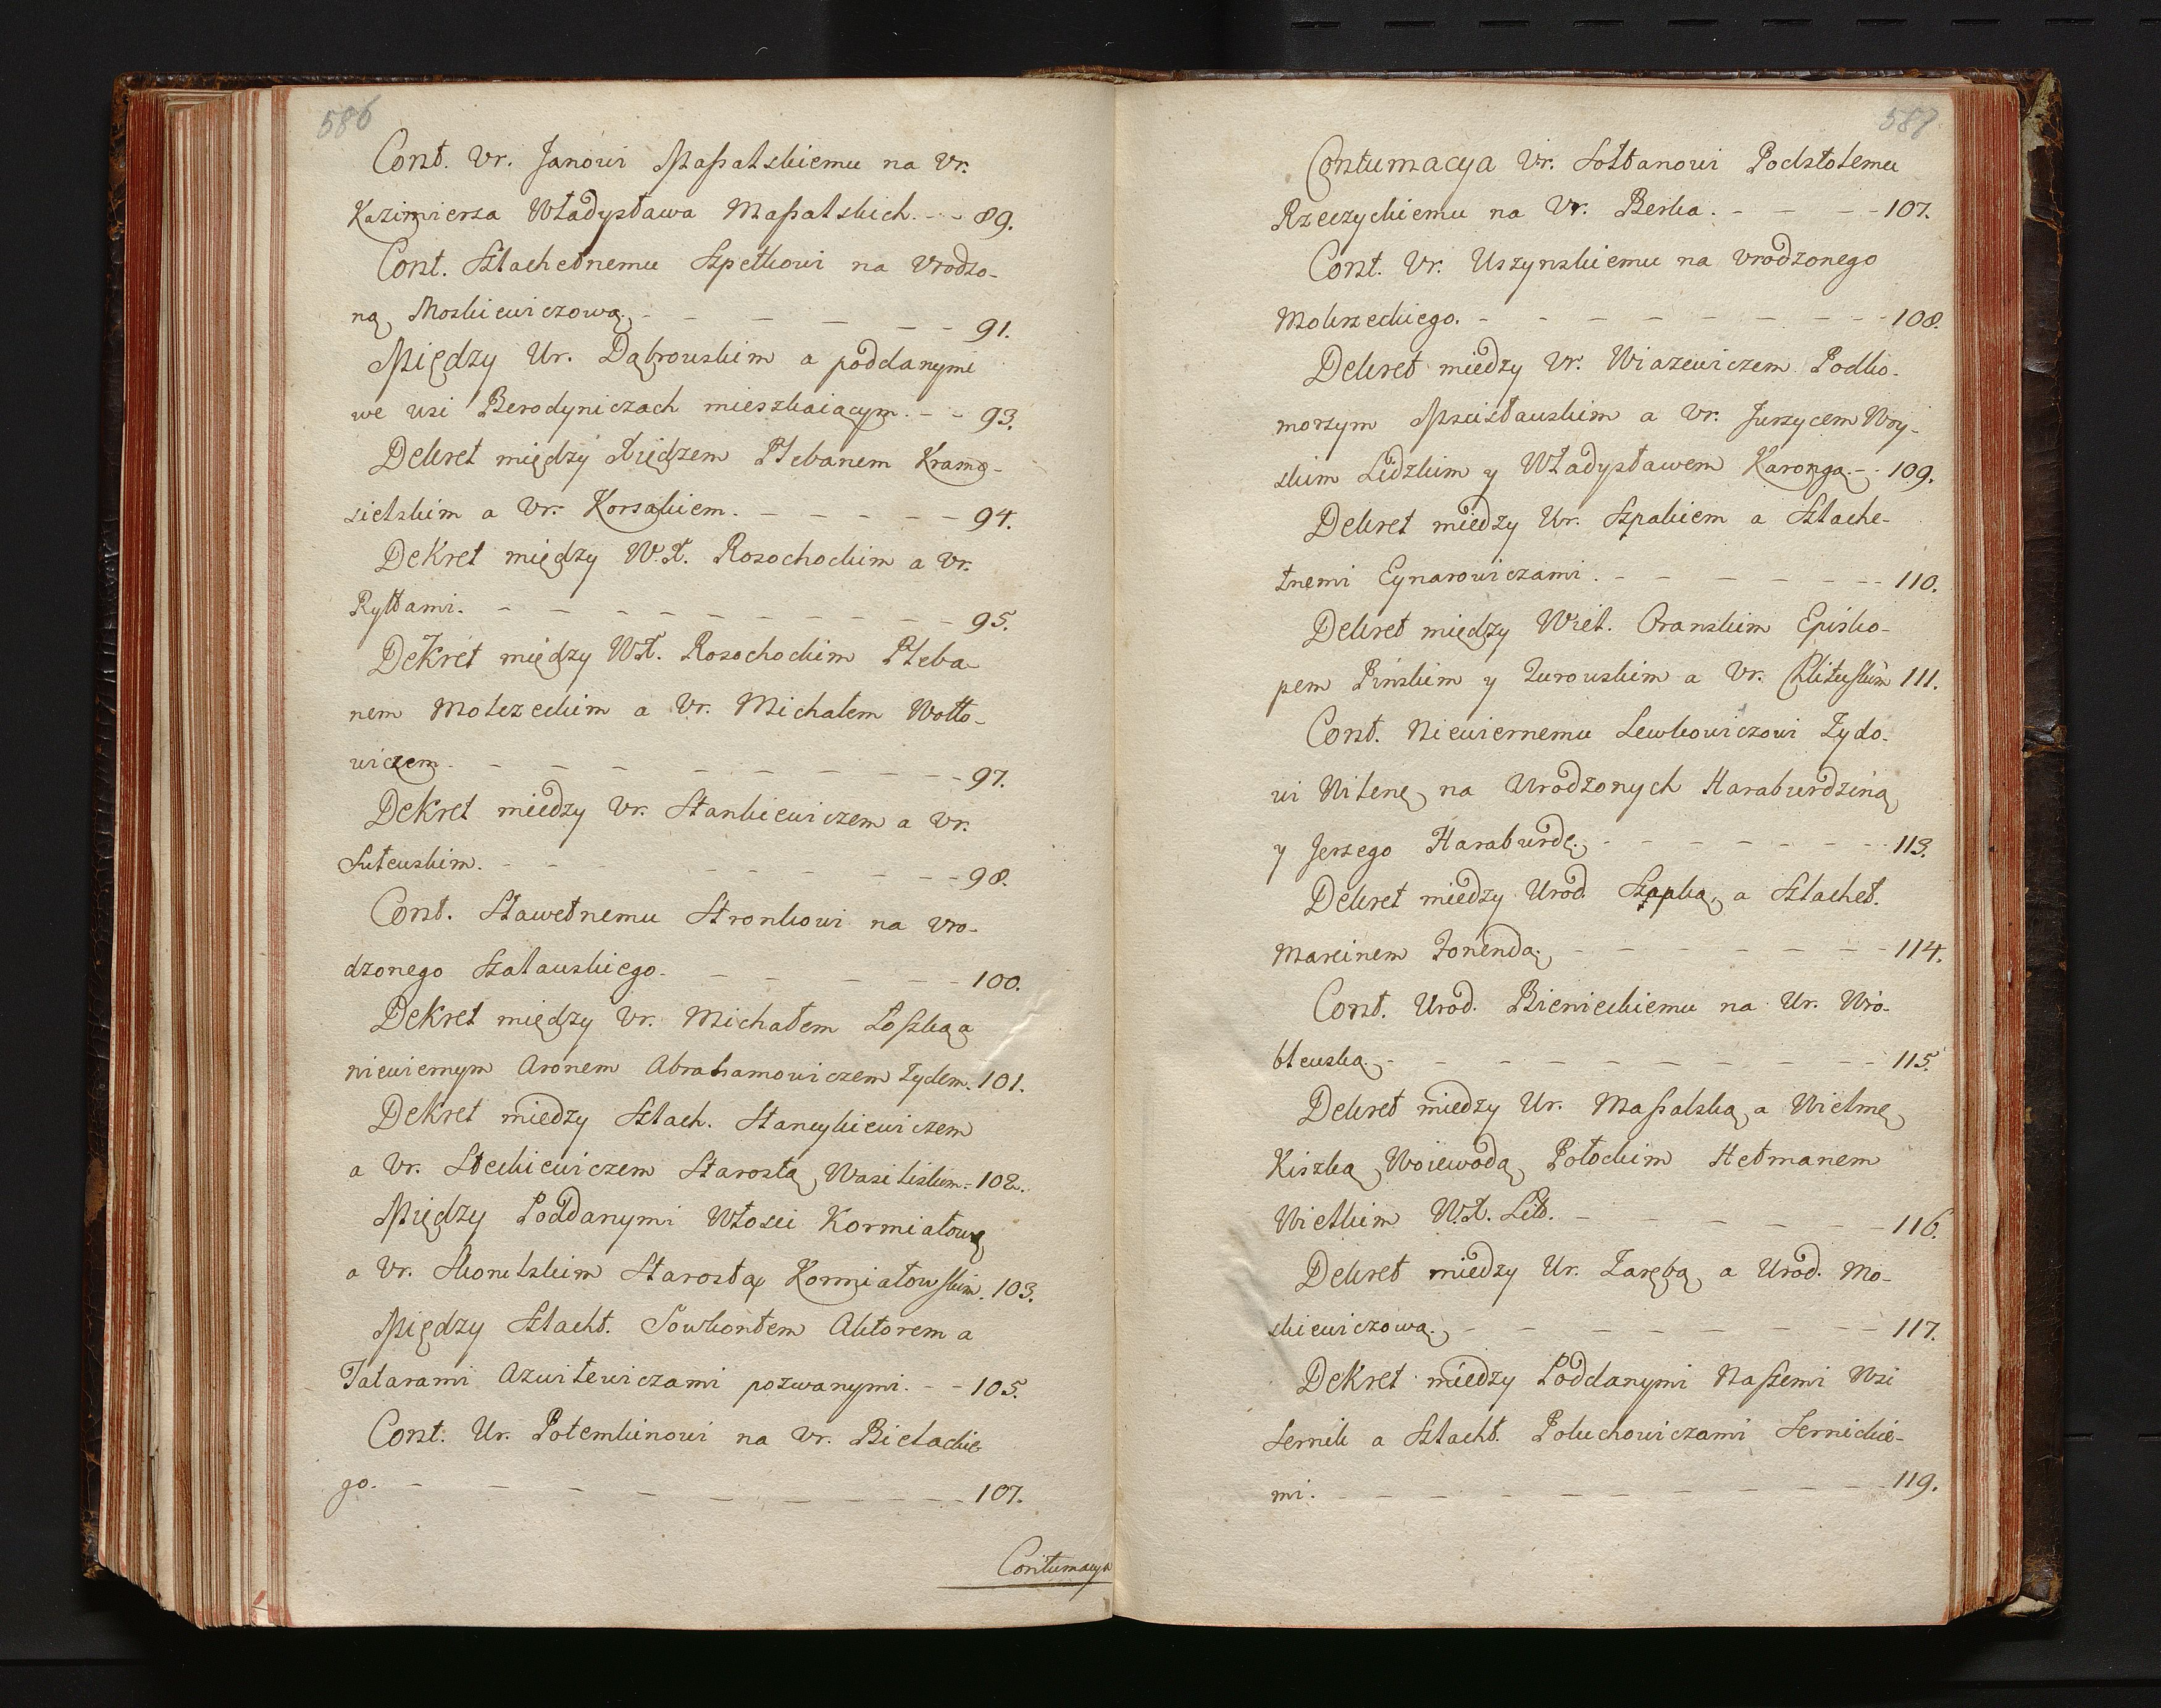 586
Cont. Vr. Janowi Massalskiemu na Vr.
Kazimierza Władysława Massalskich. - - 89.
Cont. Szlachetnemu Szpetkowi na Vrodzo-
ną Moskiewiczową. - - - - - - 91.
Między Ur. Dąbrowskim a poddanymi
we wsi Berodyniczach mieszkaiącym. - - 93.
Dekret między Xiędzem Plebanem Kramo-
sielskim a Vr. Korsakiem. - - - - - - 94.
DeKret między W. X. Rosochockim a Vr.
Ryttami. - - - - - - - - - - 95.
DeKret między WX. Rosochockim Pleba
nem Molczeckim a Vr. Michałem Wołło-
wiczem - - - - - - - - - - 97.
DeKret miedzy Vr. Stankiewiczem a Vr.
Sutewskim. - - - - - - - - - 98.
Cont. Sławetnemu Stronkowi na Vro-
dzonego Szalawskiego. - - - - - - 100.
DeKret między Vr. Michałem Łoszką a
niewiernym Aronem Abrahamowiczem Zydem. 101.
DeKret miedzy Szlach. Stancykiewiczem
a Vr. Steckiewiczem Starostą Wasiliskim - 102.
Między Poddanymi Włosci Kormiałową
a Vr. Skonelskim Starostą Kormiałowskim. 103.
Między Szlacht. Sowkontem Aktorem a
Tatarami Azwilewiczami pozwanymi. - - 105.
Cont. Ur. Potemkinowi na Vr. Bielackie
go. - - - - - - - - - - 107.
Contumacya
587
Contumacya Vr. Sołtanowi Podstolemu
Rzeczyckiemu na Vr. Berka. - - - - 107.
Cont. Vr. Uszynskiemu na vrodzonego
Mokrzeckiego. - - - - - - - - - 108.
Dekret miedzy Vr. Wiazewiczem Podko-
morzym Mscisławskim a Vr. Jurzycem Woy-
skim Lidzkim y Władysławem Karongą. - - 109.
Dekret miedzy Ur. Szpakiem a Szlache-
tnemi Eynarowiczami. - - - - - - - 110.
Dekret między Wiel. Oranskim Episko-
pem Pińskim y Turowskim a Vr. Chlitewskim 111.
Cont. Niewiernemu Lewkowiczowi Zydo-
wi Witenę na Urodzonych Haraburdziną
y Jerzego Haraburdę. - - - - - - - 113.
Dekret miedzy Urod. Szapką, a Szlachet.
Marcinem Zonendą. - - - - - - - - 114.
Cont. Urod. Bienieckiemu na Ur. Wro-
blewską. - - - - - - - - - - 115.
Dekret miedzy Ur. Massalską a Wielmę
Kiszką Woiewodą Połockim Hetmanem
Wielkim W. X. Litt. - - - - - - - 116.
Dekret miedzy Ur. Zarębą a Urod. Mo-
skiewiczową. - - - - - - - - - 117.
DeKret miedzy Poddanymi Naszemi Wsi
Sernik a Szlacht. Poluchowiczami Sernickie-
mi. - - - - - - - - - - - - 119.